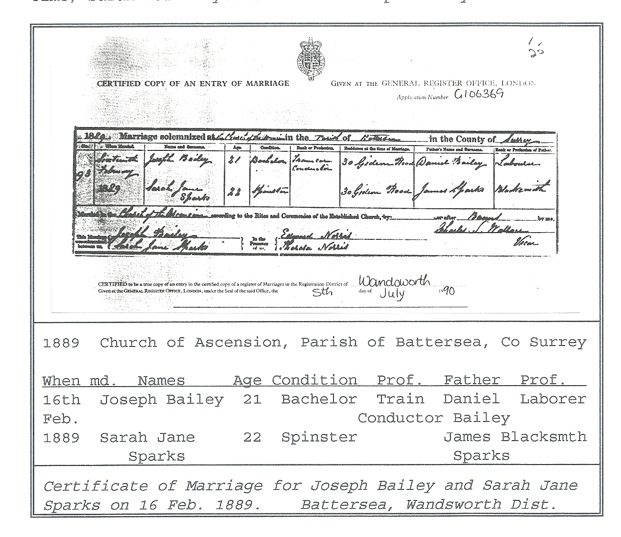 CERTIFIED COPY OF AN ENTRY OF MARRIAGE GIVEN AT THE GENERAL REGISTER OFFICE, LONDON.
Application Number G106369
1889 Marriage solemnized at the Church of the Ascension in the Parish of Battersea in the County of Surrey
No. When Married. Name and Surname. Age. Condition. Rank or Profession. Residence at the time of Marriage. Father's Name and Surname. Rank or Profession of Father.
93 Sixteenth February 1889 Joseph Bailey 21 Bachelor Conductor 30 Gideon Road Daniel Bailey Labourer
Sarah Jane Sparks 22 Spinster 30 Gideon Road James Sparks Blacksmith
Married in the Church of the Ascension according to the Rites and Ceremonies of the Established Church, by after Banns by me,
This Marriage was solemnized between us, Joseph Bailey Sarah Jane Sparks In the Presence of us, Edmund Norris Norris Charles J. Wallace Vicar
CERTIFIED to be a true copy of an entry in the certified copy of a register of Marriages in the Registration District of Wandsworth
Given at the GENERAL REGISTER OFFICE, LONDON, under the Seal of the said Office, the 5th day of July 1990
1889 Church of Ascension, Parish of Battersea, Co Surrey
When md. Names Age Condition Prof. Father Prof.
16th Joseph Bailey 21 Bachelor Train Daniel Laborer
Feb. Conductor Bailey
1889 Sarah Jane 22 Spinster James Blacksmth
Sparks Sparks
Certificate of Marriage for Joseph Bailey and Sarah Jane
Sparks on 16 Feb. 1889. Battersea, Wandsworth Dist.